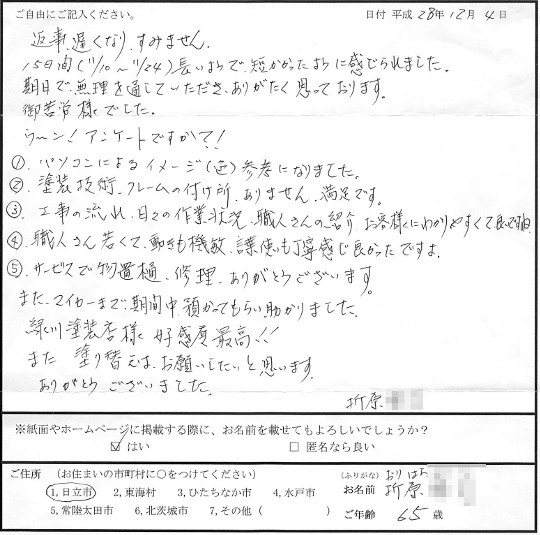 ご自由にご記入ください。
日付 平成 28年 12月 4日
返事、遅くなり、すみません。
15日間(11/10〜11/24)長いようで、短かかったように感じられました。
期日で、無理を通していただき、ありがたく思っております。
御苦労様でした。
う〜ン! アンケートですか〜?!
①. パソコンによるイメージ(色)参考になりました。
②. 塗装技術、クレームの付け所、ありません、満足です。
③ 工事の流れ、日々の作業状況、職人さんの紹介 お客様にわかりやすくて良いですね
④. 職人さん若くて、動きも機敏、謙虚も丁寧感じ良かったですよ
⑤. サービスで物置樋、修理、ありがとうございます。
また、マイカーまで期間中、預かってもらい助かりました。
緑川塗装店様 好感度最高!!
また 塗り替えは、お願いしたいと思います。
ありがとうございました。
折原
※紙面やホームページに掲載する際に、お名前を載せてもよろしいでしょうか?
☑ はい □ 匿名なら良い
ご住所 (お住まいの市町村に○をつけてください)
(ふりがな) おりはら
1,日立市 2,東海村 3,ひたちなか市 4,水戸市
お名前 折原
5,常陸太田市 6,北茨城市 7,その他( )
ご年齢 65 歳